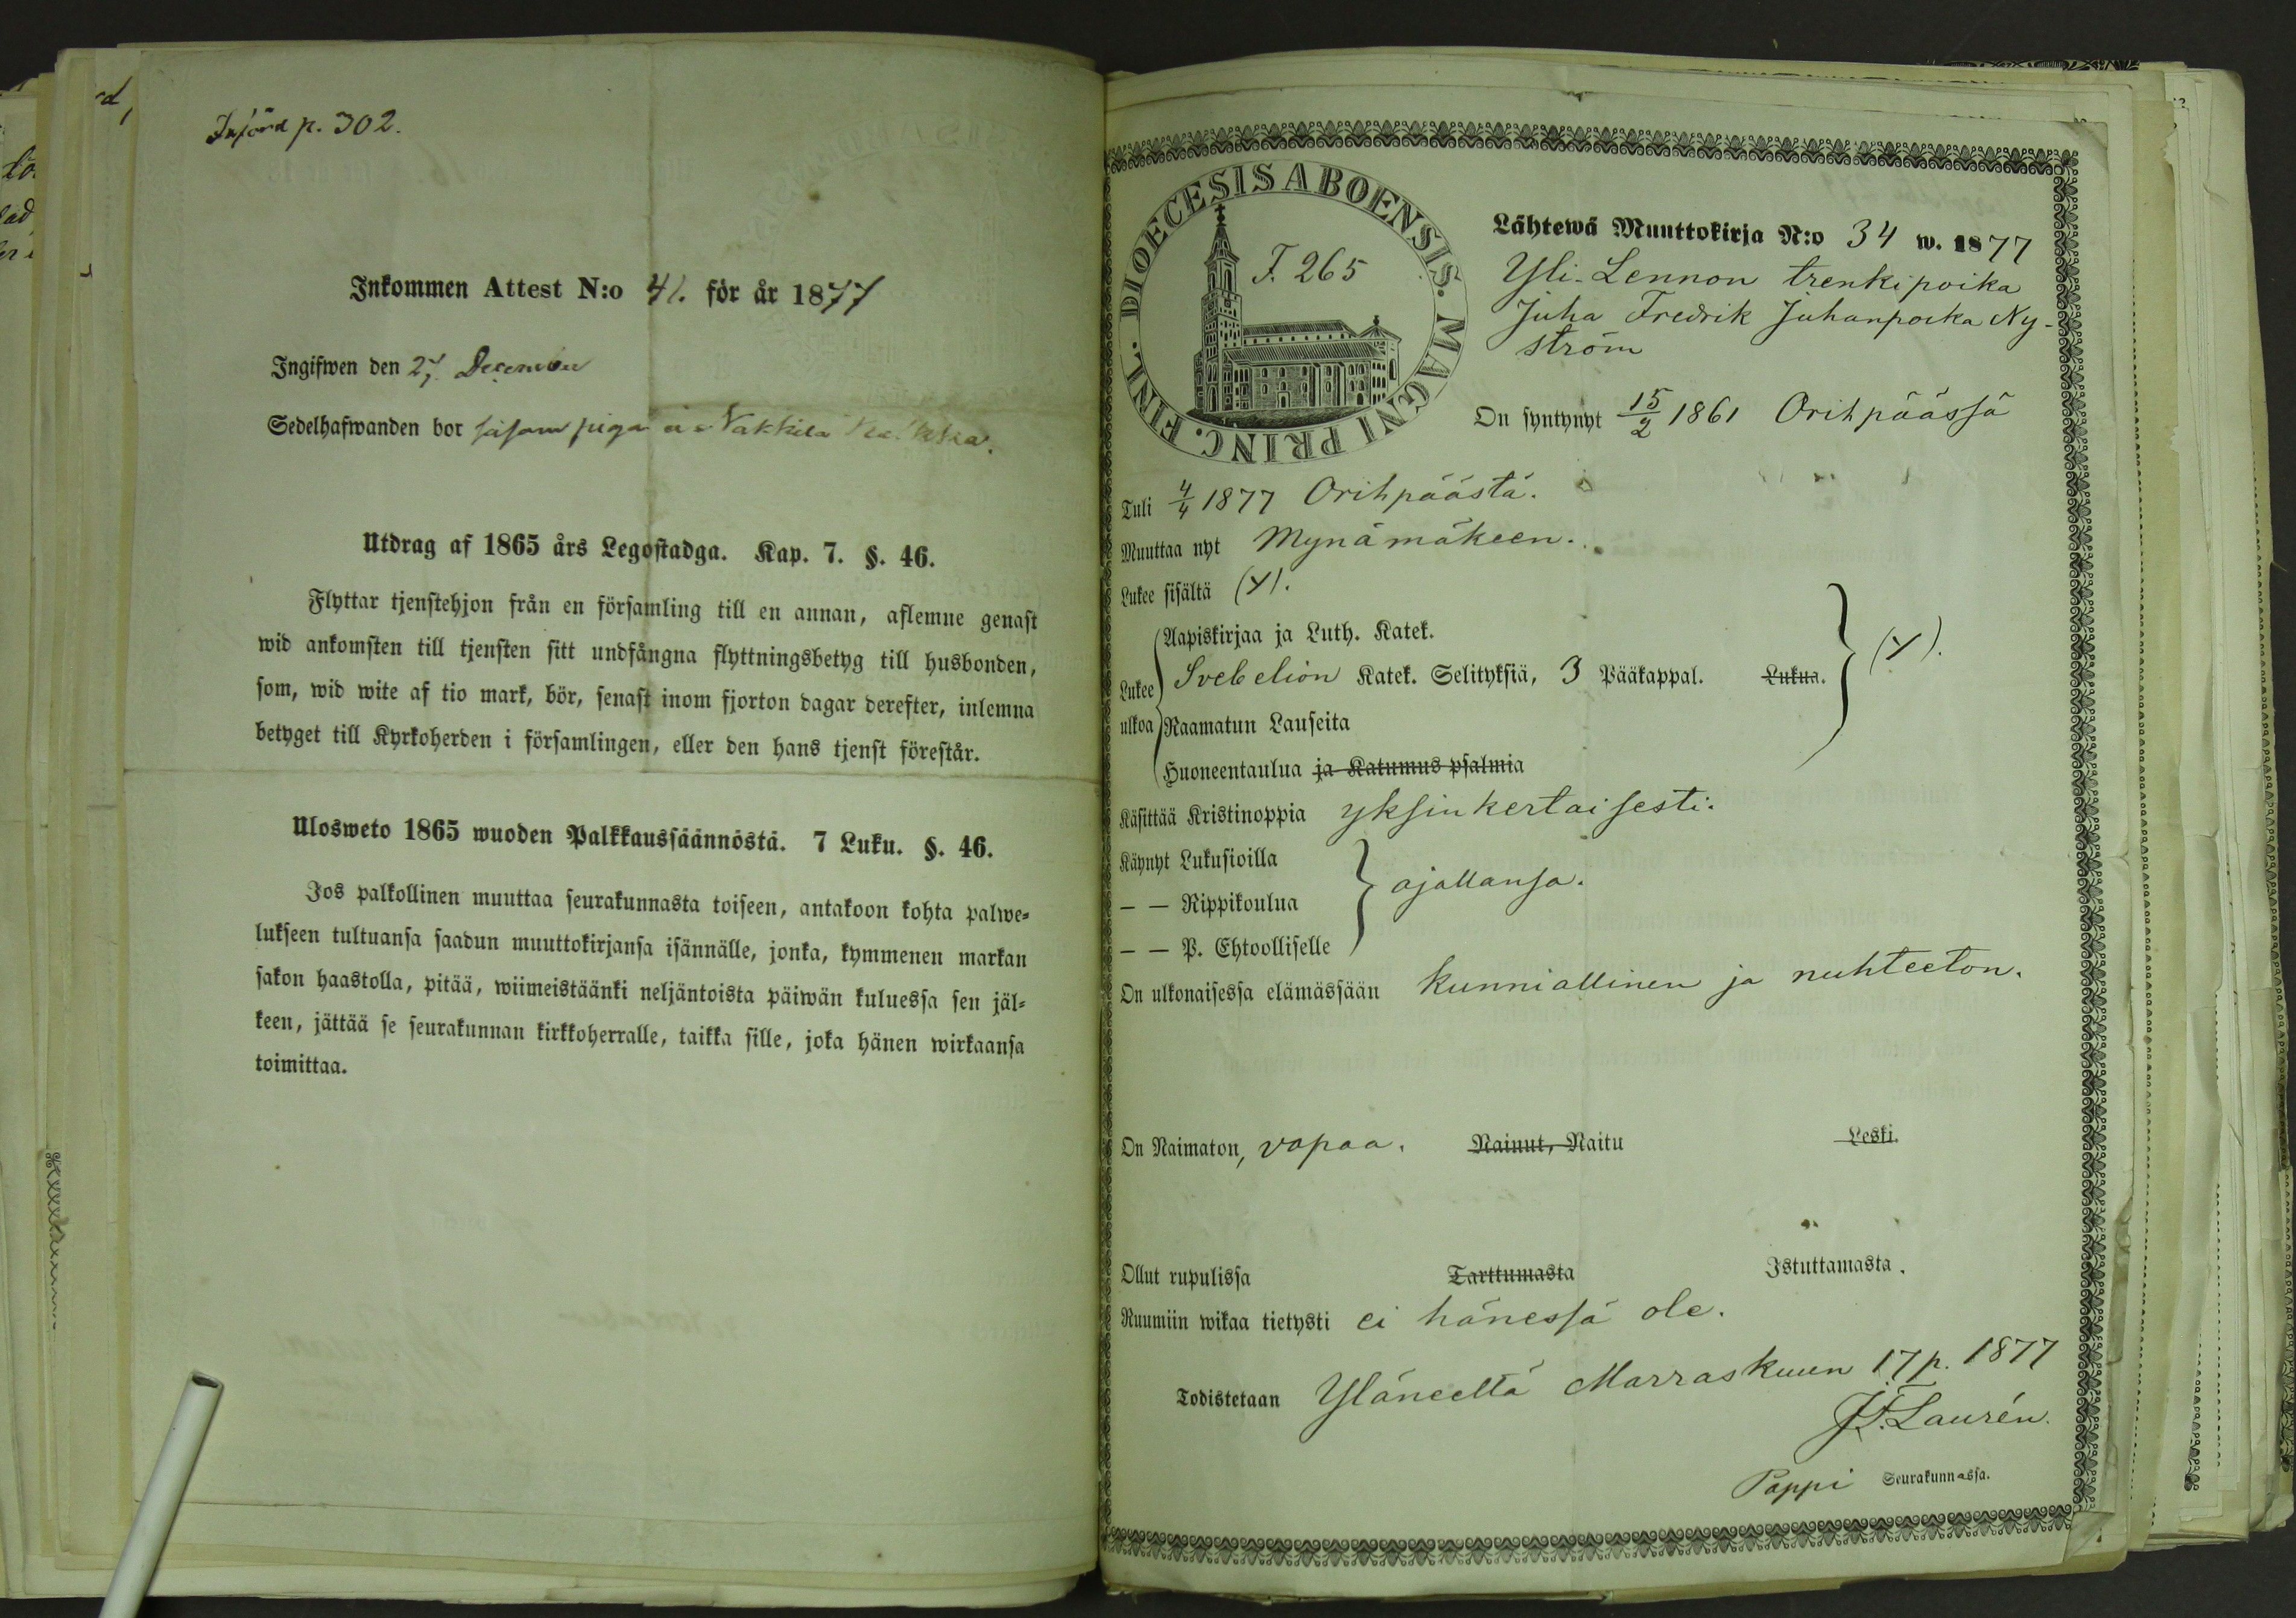 Införd p. 302.
Inkommen Attest N:o 41. för år 1877
Ingifwen den 27 December
Sedelhafwanden bor såsom piga Nakkila
Utdrag af 1865 års Legostadga. Kap. 7. §. 46.
Flyttar tjenstehjon från en församling till en annan, aflemne genast
wid ankomsten till tjensten sitt undfångna flyttningsbetyg till husbonden,
som, wid wite af tio mark, bör, senast inom fjorton dagar derefter, inlemna
betyget till Kyrkoherden i församlingen, eller den hans tjenst förestår.
Ulosweto 1865 wuoden Palkkaussäännöstä. 7 Luku. §. 46.
Jos palkollinen muuttaa seurakunnasta toiseen, antakoon kohta palwe-
lukseen tultuansa saadun muuttokirjansa isännälle, jonka, kymmenen markan
sakon haastolla, pitää, wiimeistäänki neljäntoista päiwän kuluessa sen jäl-
keen, jättää se seurakunnan kirkkoherralle, taikka sille, joka hänen wirkaansa
toimittaa.
DIOECESIS ABOENSIS. MAGNI PRINC. FINL.
F. 265
Lähtewä Muuttokirja N:o 34 w. 1877
Yli-Lennon trenkipoika
Juha Fredrik Juhanpoika Ny-
ström
On syntynyt 15/2 1861 Orihpäässä
Tuli 4/4 1877 Orihpäästä.
Muuttaa nyt Mynämäkeen.
Lukee sisältä (Y).
Lukee ulkoa
Aapiskirjaa ja Luth. Katek.
Svebelion Katek. Selityksiä, 3 Pääkappal. Lukua. (Y).
Raamatun Lauseita
Huoneentaulua ja Katumus psalmia
Käsittää Kristinoppia yksinkertaisesti.
Käynyt Lukusioilla
— — Rippikoulua ajallansa.
— — P. Ehtoolliselle
On ulkonaisessa elämässään kunniallinen ja nuhteeton.
On Naimaton, vapaa. Nainut, Naitu Leski.
Ollut rupulissa Tarttumasta Istuttamasta.
Ruumiin wikaa tietysti ei hänessä ole.
Todistetaan Yläneeltä Marraskuun 17 p. 1877
J.F. Laurén.
Pappi Seurakunnassa.